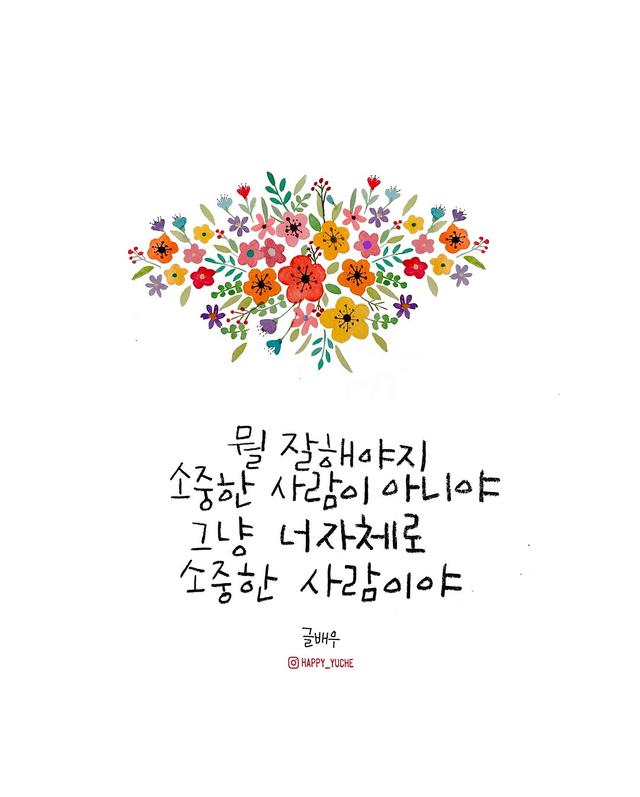 뭘 잘해야지
소중한 사람이 아니야
그냥 너자체로
소중한 사람이야
글배우
HAPPY_YUCHE